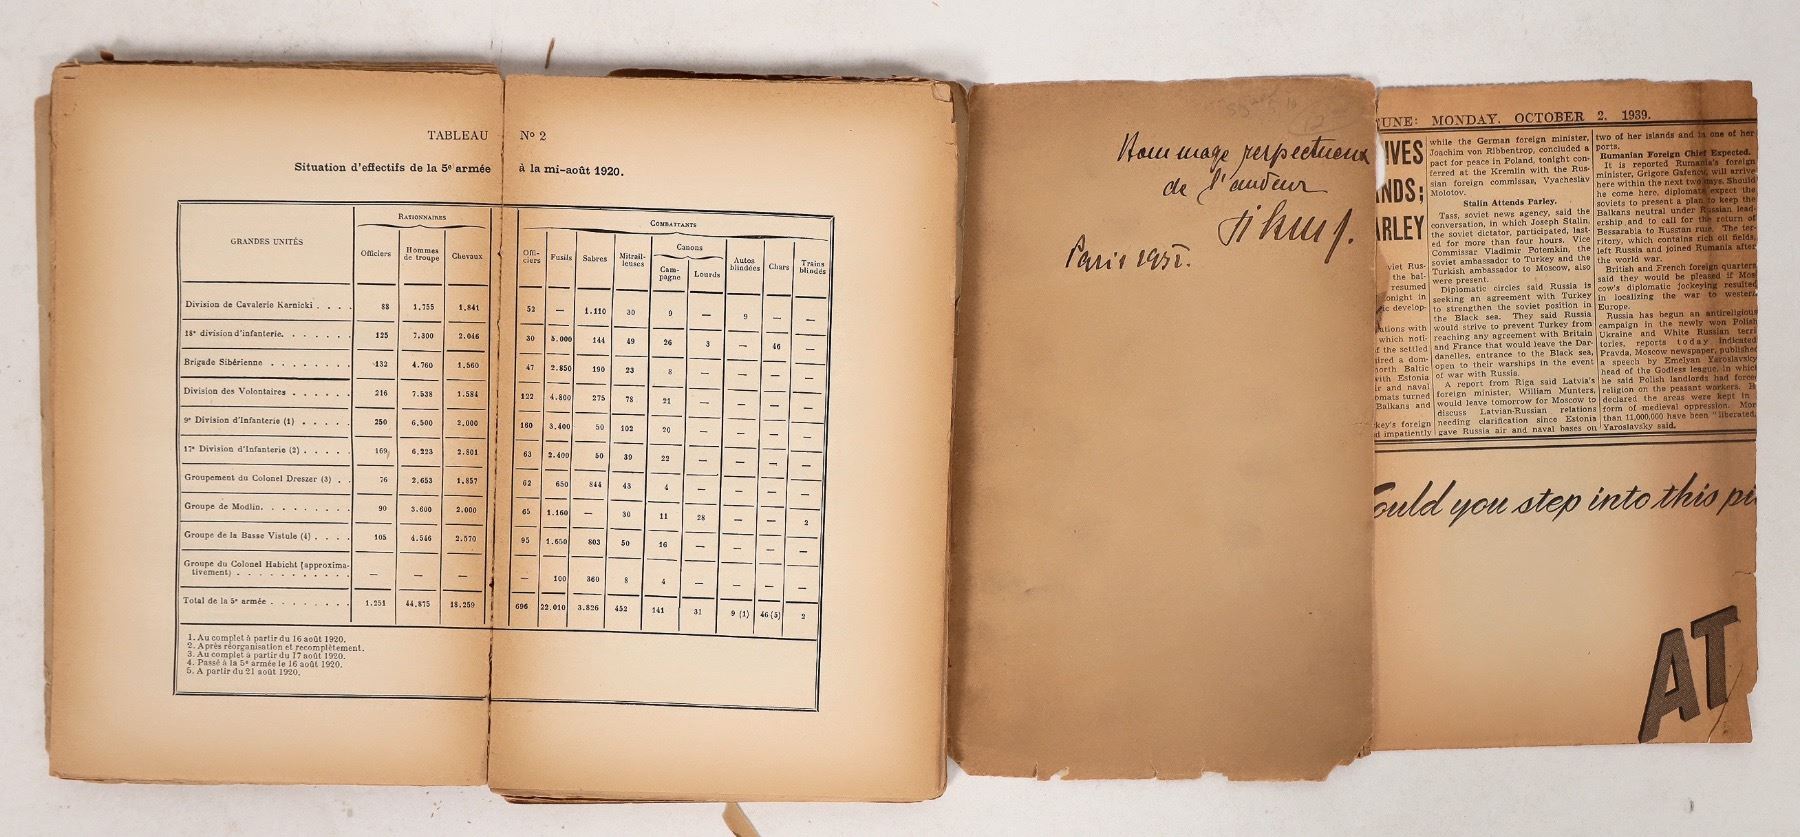 TABLEAU No 2
Situation d'effectifs de la 5e armée à la mi-août 1920.
GRANDES UNITÉS
RATIONNAIRES
Officiers
Hommes de troupe
Chevaux
COMBATTANTS
Offi-
ciers
Fusils
Sabres
Mitrail-
leuses
Canons
Cam-
pagne
Lourds
Autos
blindées
Chars
Trains
blindés
Division de Cavalerie Karnicki . . . . 88 1.755 1.841 52 — 1.110 30 9 — 9 — —
18e division d'infanterie. . . . . . . 125 7.300 2.046 30 5.000 144 49 26 3 — 46 —
Brigade Sibérienne . . . . . . . . 132 4.760 1.560 47 2.850 190 23 8 — — — —
Division des Volontaires . . . . . . 216 7.538 1.584 122 4.800 275 78 21 — — — —
9e Division d'Infanterie (1) . . . . . 250 6.500 2.000 160 3.400 50 102 20 — — — —
17e Division d'Infanterie (2) . . . . . 169 6.223 2.801 63 2.400 50 39 22 — — — —
Groupement du Colonel Dreszer (3) . . 76 2.653 1.857 62 650 844 43 4 — — — —
Groupe de Modlin. . . . . . . . . 90 3.600 2.000 65 1.160 — 30 11 28 — — 2
Groupe de la Basse Vistule (4) . . . . 105 4.546 2.570 95 1.650 803 50 16 — — — —
Groupe du Colonel Habicht (approxima-
tivement) . . . . . . . . . . . — — — — 100 360 8 4 — — — —
Total de la 5e armée . . . . . . . . 1.251 44.875 18.259 696 22.010 3.826 452 141 31 9 (1) 46 (5) 2
1. Au complet à partir du 16 août 1920.
2. Après réorganisation et recomplètement.
3. Au complet à partir du 17 août 1920.
4. Passé à la 5e armée le 16 août 1920.
5. A partir du 21 août 1920.
Hommage respectueux
de l'auteur
Paris 1931.
UNE: MONDAY, OCTOBER 2, 1939.
IVES
NDS;
ARLEY
viet Rus-
the bal-
resumed
onight in
ic develop-
ations with
which noti-
f the settled
ired a dom-
north Baltic
with Estonia
ir and naval
omats turned
Balkans and
key's foreign
d impatiently
while the German foreign minister,
Joachim von Ribbentrop, concluded a
pact for peace in Poland, tonight con-
ferred at the Kremlin with the Rus-
sian foreign commissar, Vyacheslav
Molotov.
Stalin Attends Parley.
Tass, soviet news agency, said the
conversation, in which Joseph Stalin,
the soviet dictator, participated, last-
ed for more than four hours. Vice
Commissar Vladimir Potemkin, the
soviet ambassador to Turkey and the
Turkish ambassador to Moscow, also
were present.
Diplomatic circles said Russia is
seeking an agreement with Turkey
to strengthen the soviet position in
the Black sea. They said Russia
would strive to prevent Turkey from
reaching any agreement with Britain
and France that would leave the Dar-
danelles, entrance to the Black sea,
open to their warships in the event
of war with Russia.
A report from Riga said Latvia's
foreign minister, William Munters,
would leave tomorrow for Moscow to
discuss Latvian-Russian relations
needing clarification since Estonia
gave Russia air and naval bases on
two of her islands and in one of her
ports.
Rumanian Foreign Chief Expected.
It is reported Rumania's foreign
minister, Grigore Gafencu, will arrive
here within the next two days. Should
he come here, diplomats expect the
soviets to present a plan to keep the
Balkans neutral under Russian lead-
ership and to call for the return of
Bessarabia to Russian rule. The ter-
ritory, which contains rich oil fields,
left Russia and joined Rumania after
the world war.
British and French foreign quarters
said they would be pleased if Mos-
cow's diplomatic jockeying resulted
in localizing the war to western
Europe.
Russia has begun an antireligious
campaign in the newly won Polish
Ukraine and White Russian terri-
tories, reports today indicated.
Pravda, Moscow newspaper, published
a speech by Emelyan Yaroslavsky,
head of the Godless league, in which
he said Polish landlords had forced
religion on the peasant workers. He
declared the areas were kept in
form of medieval oppression. More
than 11,000,000 have been "liberated,"
Yaroslavsky said.
ould you step into this pi
AT